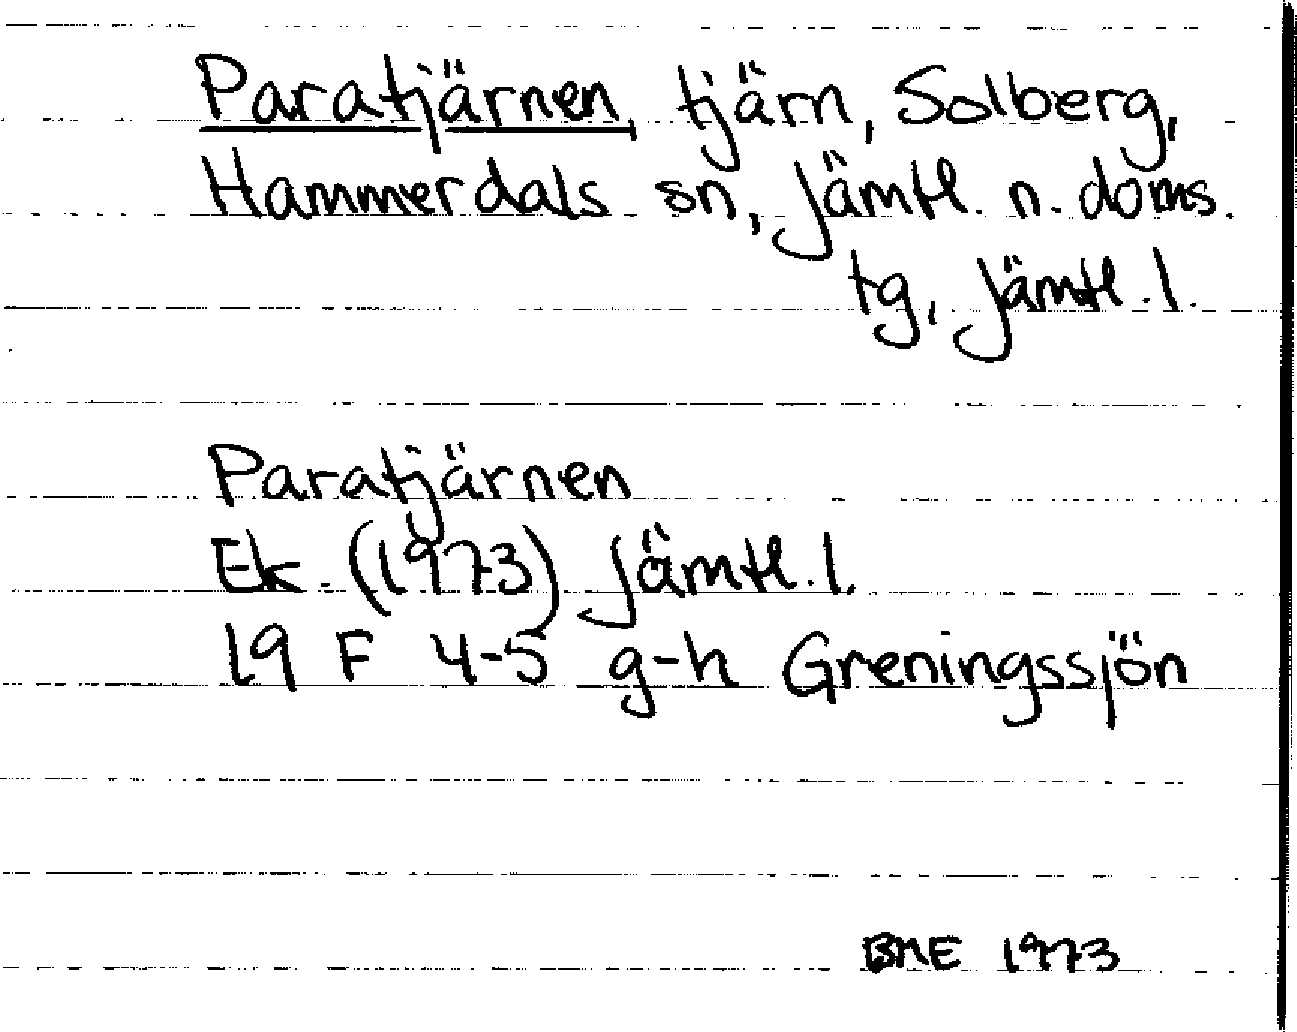 Paratjärnen, tjärn, Solberg,
Hammerdals sn, Jämtl. n. doms.
tg, Jämtl. l.
Paratjärnen
Ek. (1973) Jämtl. l.
19 F 4-5 g-h Greningssjön
BME 1973